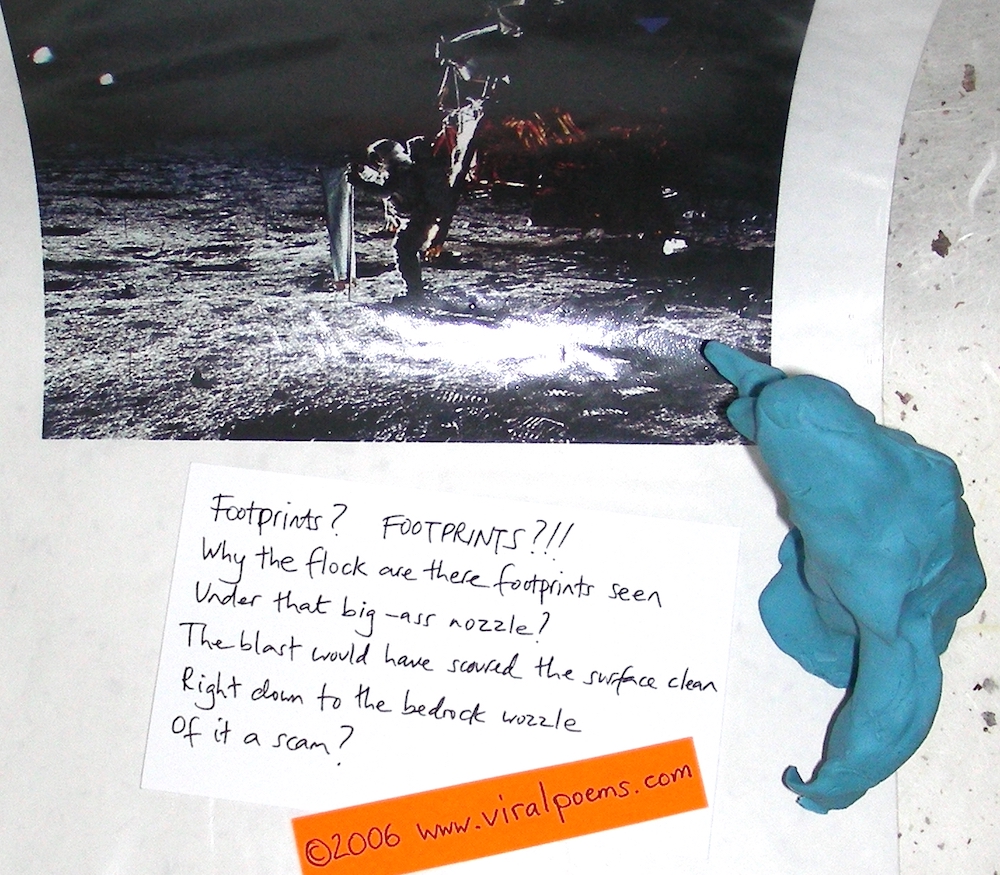 Footprints? FOOTPRINTS?!!!
Why the flock are there footprints seen
Under that big-ass nozzle?
The blast would have scoured the surface clean
Right down to the bedrock wozzle
Of it a scam?
©2006 www.viralpoems.com